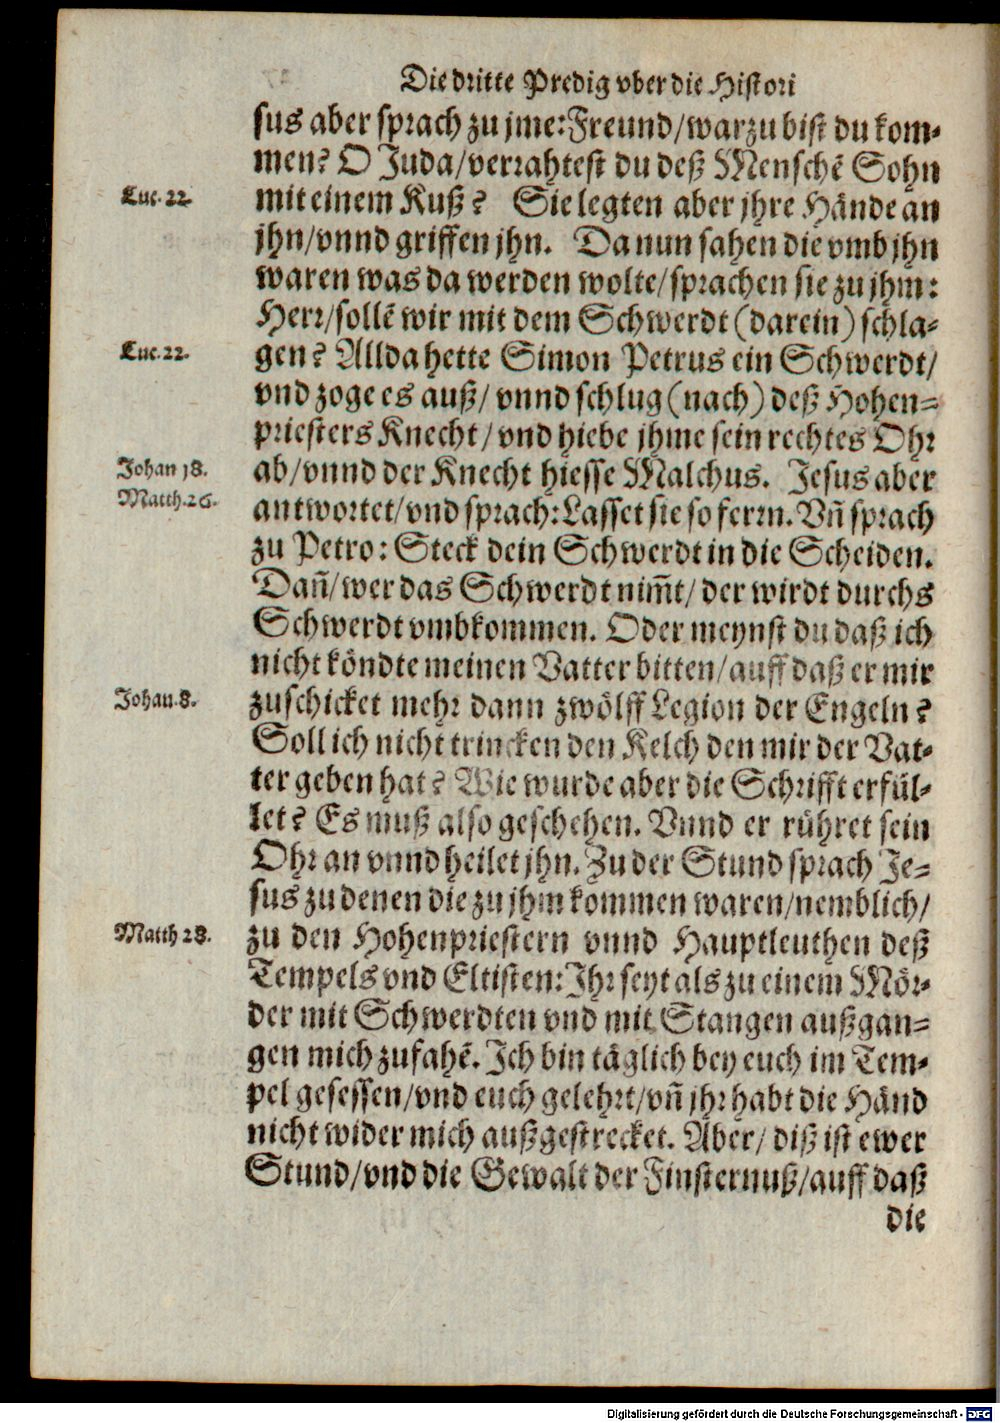 Die dritte Predig vber die Histori
sus aber sprach zu jme: Freund/ warzu bist du kom-
men? O Juda/ verrahtest du deß Menschẽ Sohn
Luc. 22. mit einem Kuß? Sie legten aber jhre Hände an
jhn/ vnnd griffen jhn. Da nun sahen die vmb jhn
waren was da werden wolte/ sprachen sie zu jhm:
Herr/ sollẽ wir mit dem Schwerdt (darein) schla-
Luc. 22. gen? Allda hette Simon Petrus ein Schwerdt/
vnd zoge es auß/ vnnd schlug (nach) deß Hohen-
priesters Knecht/ vnd hiebe jhme sein rechtes Ohr
Johan 18. ab/ vnnd der Knecht hiesse Malchus. Jesus aber
Matth. 26. antwortet/ vnd sprach: Lasset sie so ferrn. Vñ sprach
zu Petro: Steck dein Schwerdt in die Scheiden.
Dañ/ wer das Schwerdt nim̃t/ der wirdt durchs
Schwerdt vmbkommen. Oder meynst du daß ich
nicht köndte meinen Vatter bitten/ auff daß er mir
Johan. 8. zuschicket mehr dann zwölff Legion der Engeln?
Soll ich nicht trincken den Kelch den mir der Vat-
ter geben hat? Wie wurde aber die Schrifft erfül-
let? Es muß also geschehen. Vnnd er rühret sein
Ohr an vnnd heilet jhn. Zu der Stund sprach Je-
sus zu denen die zu jhm kommen waren/ nemblich/
Matth 28. zu den Hohenpriestern vnnd Hauptleuthen deß
Tempels vnd Eltisten: Ihr seyt als zu einem Mör-
der mit Schwerdten vnd mit Stangen außgan-
gen mich zufahẽ. Ich bin täglich bey euch im Tem-
pel gesessen/ vnd euch gelehrt/ vñ jhr habt die Händ
nicht wider mich außgestrecket. Aber/ diß ist ewer
Stund/ vnd die Gewalt der Finsternuß/ auff daß
die
Digitalisierung gefördert durch die Deutsche Forschungsgemeinschaft - DFG